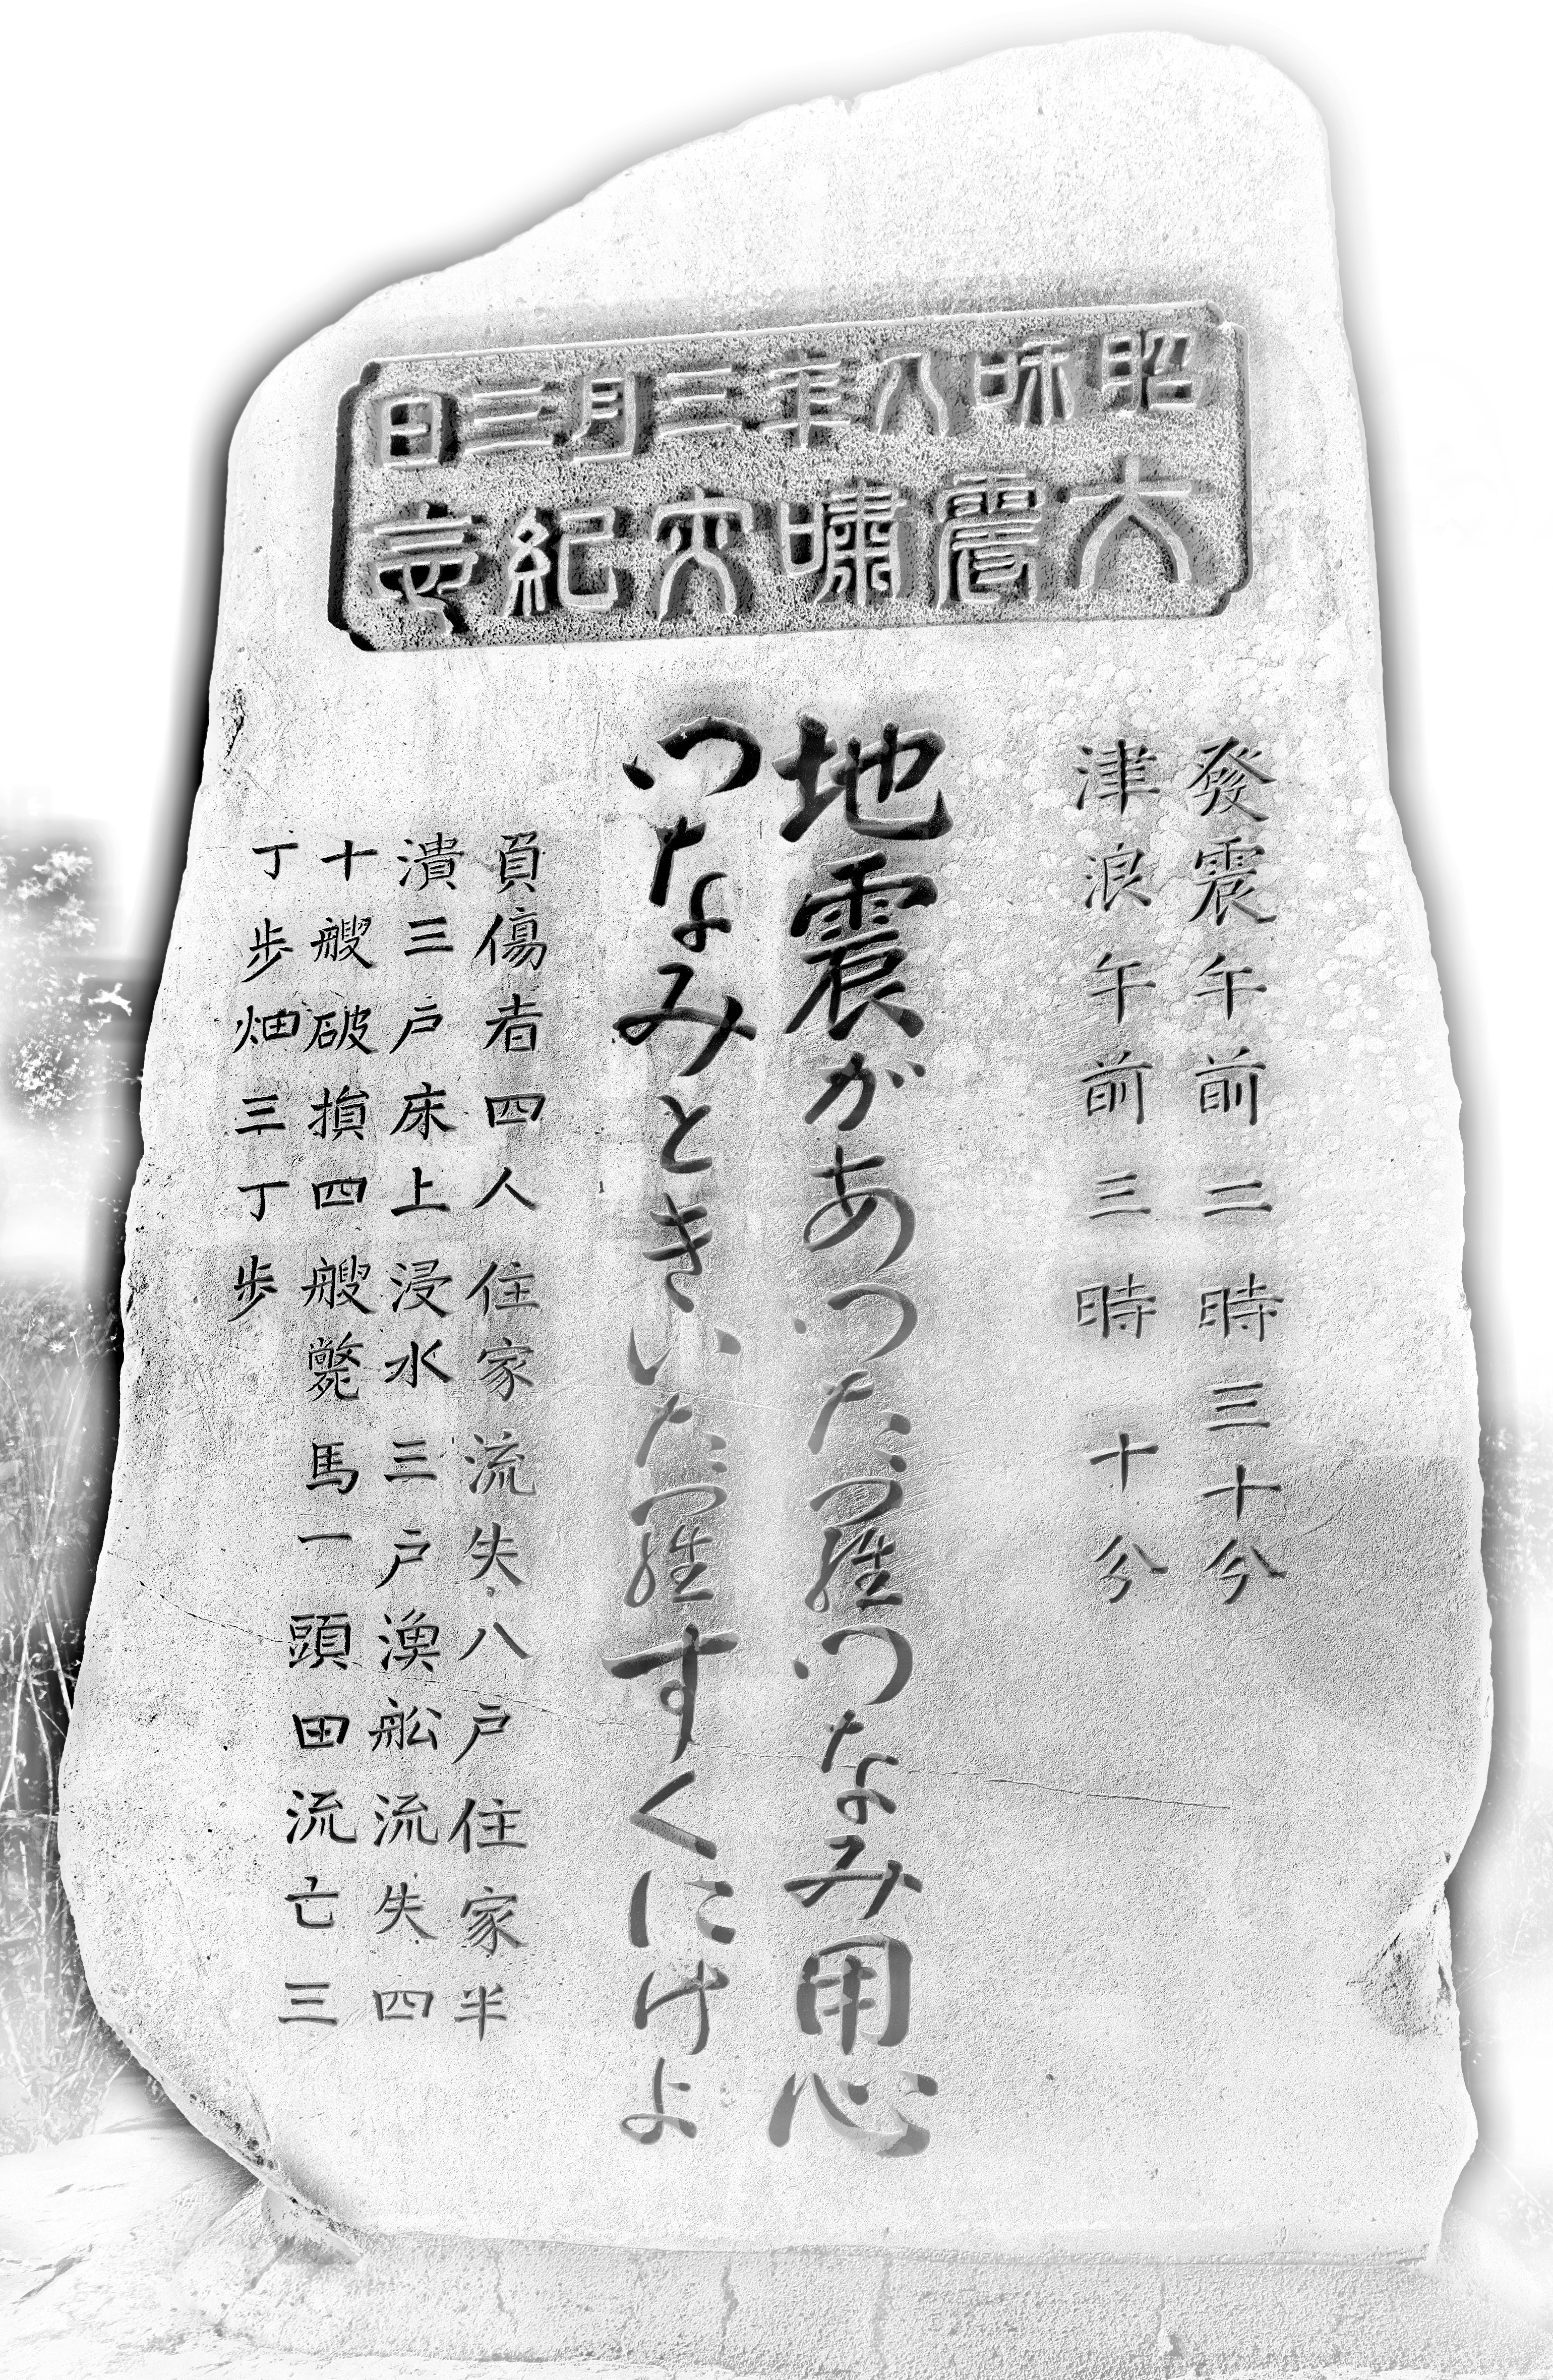 昭和八年三月三日
大震嘯災紀念
發震午前二時三十分
津浪午前三時十分
地震があつた羅つなみ用心
つなみときいた羅すくにけよ
負傷者四人住家流失八戸住家半
潰三戸床上浸水三戸漁舩流失四
十艘破損四艘斃馬一頭田流亡三
丁歩畑三丁歩